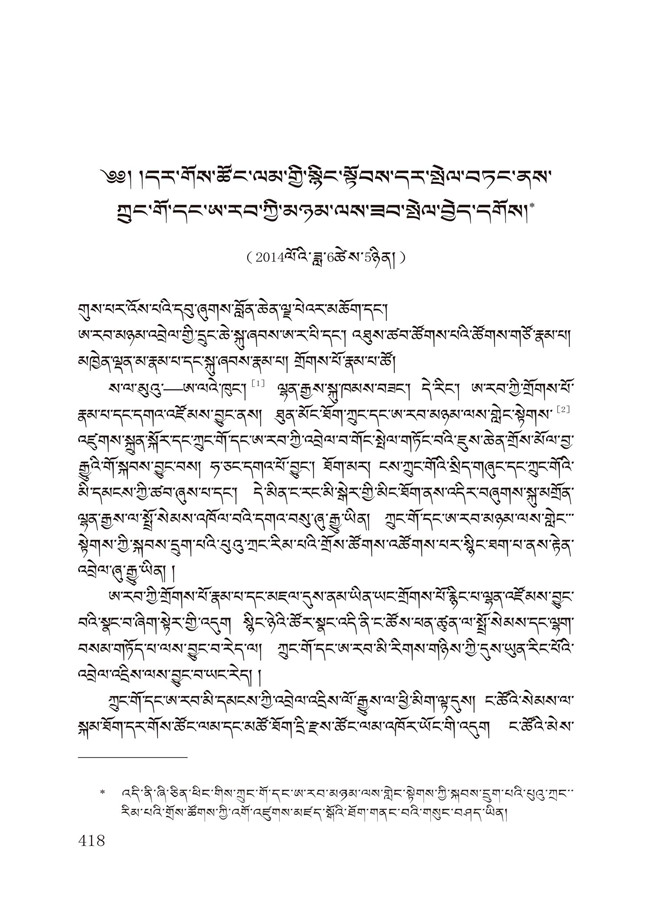 ༄༅། །དར་གོས་ཚོང་ལམ་གྱི་སྙིང་སྟོབས་དར་སྤེལ་བཏང་ནས་
ཀྲུང་གོ་དང་ཨ་རབ་ཀྱི་མཉམ་ལས་ཟབ་སྤེལ་བྱེད་དགོས།*
（2014ལོའི་ཟླ་6ཚེས་5ཉིན།）
གུས་པར་འོས་པའི་དབུ་ཞུགས་བློན་ཆེན་ལྦ་པེའར་མཆོག་དང་།
ཨ་རབ་མཉམ་འབྲེལ་གྱི་དྲུང་ཆེ་སྐུ་ཞབས་ཨ་ར་པི་དང་། འཐུས་ཚབ་ཚོགས་པའི་ཚོགས་གཙོ་རྣམ་པ།
མཁྱེན་ལྡན་མ་རྣམ་པ་དང་སྐུ་ཞབས་རྣམ་པ། གྲོགས་པོ་རྣམ་པ་ཚོ།
ས་ལ་མུའུ་——ཨ་ལའེ་ཁུང་། [1] ལྷན་རྒྱས་སྐུ་ཁམས་བཟང་། དེ་རིང་། ཨ་རབ་ཀྱི་གྲོགས་པོ་
རྣམ་པ་དང་དགའ་འཛོམས་བྱུང་ནས། ཐུན་མོང་ཐོག་ཀྲུང་དང་ཨ་རབ་མཉམ་ལས་གླེང་སྟེགས་ [2]
འཛུགས་སྐྲུན་སྐོར་དང་ཀྲུང་གོ་དང་ཨ་རབ་ཀྱི་འབྲེལ་བ་གོང་སྤེལ་གཏོང་བའི་ཇུས་ཆེན་གྲོས་མོལ་བྱ་
རྒྱུའི་གོ་སྐབས་བྱུང་བས། ཧ་ཅང་དགའ་པོ་བྱུང་། ཐོག་མར། ངས་ཀྲུང་གོའི་སྲིད་གཞུང་དང་ཀྲུང་གོའི་
མི་དམངས་ཀྱི་ཚབ་ཞུས་པ་དང་། དེ་མིན་ང་རང་མི་སྒེར་གྱི་མིང་ཐོག་ནས་འདིར་བཞུགས་སྐུ་མགྲོན་
ལྷན་རྒྱས་ལ་སྤྲོ་སེམས་འཁོལ་བའི་དགའ་བསུ་ཞུ་རྒྱུ་ཡིན། ཀྲུང་གོ་དང་ཨ་རབ་མཉམ་ལས་གླེང་
སྟེགས་ཀྱི་སྐབས་དྲུག་པའི་པུའུ་ཀྲང་རིམ་པའི་གྲོས་ཚོགས་འཚོགས་པར་སྙིང་ཐག་པ་ནས་རྟེན་
འབྲེལ་ཞུ་རྒྱུ་ཡིན། །
ཨ་རབ་ཀྱི་གྲོགས་པོ་རྣམ་པ་དང་མཇལ་དུས་ནམ་ཡིན་ཡང་གྲོགས་པོ་རྙིང་པ་ལྷན་འཛོམས་བྱུང་
བའི་སྣང་བ་ཞིག་སྟེར་གྱི་འདུག སྙིང་ཉེའི་ཚོར་སྣང་འདི་ནི་ང་ཚོས་ཕན་ཚུན་ལ་སྤྲོ་སེམས་དང་ལྷག་
བསམ་གཏོད་པ་ལས་བྱུང་བ་རེད་ལ། ཀྲུང་གོ་དང་ཨ་རབ་མི་རིགས་གཉིས་ཀྱི་དུས་ཡུན་རིང་པོའི་
འབྲེལ་འདྲིས་ལས་བྱུང་བ་ཡང་རེད། །
ཀྲུང་གོ་དང་ཨ་རབ་མི་དམངས་ཀྱི་འབྲེལ་འདྲིས་ལོ་རྒྱུས་ལ་ཕྱི་མིག་ལྟ་དུས། ང་ཚོའི་སེམས་ལ་
སྐམ་ཐོག་དར་གོས་ཚོང་ལམ་དང་མཚོ་ཐོག་དྲི་རྫས་ཚོང་ལམ་འཁོར་ཡོང་གི་འདུག ང་ཚོའི་མེས་
* འདི་ནི་ཞི་ཅིན་ཕིང་གིས་ཀྲུང་གོ་དང་ཨ་རབ་མཉམ་ལས་གླེང་སྟེགས་ཀྱི་སྐབས་དྲུག་པའི་པུའུ་ཀྲང་
རིམ་པའི་གྲོས་ཚོགས་ཀྱི་འགོ་འཛུགས་མཛད་སྒོའི་ཐོག་གནང་བའི་གསུང་བཤད་ཡིན།
418